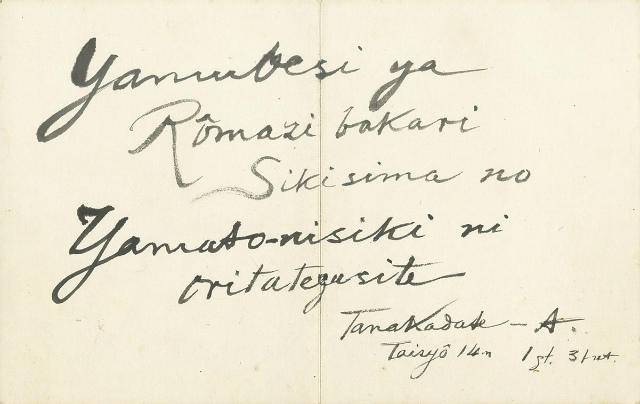 Yamubesi ya
Rômazi bakari
Sikisima no
Yamato-nisiki ni
oritategusite
Tanakadate – A.
Taisyô 14 n 1 gt. 31 nt.